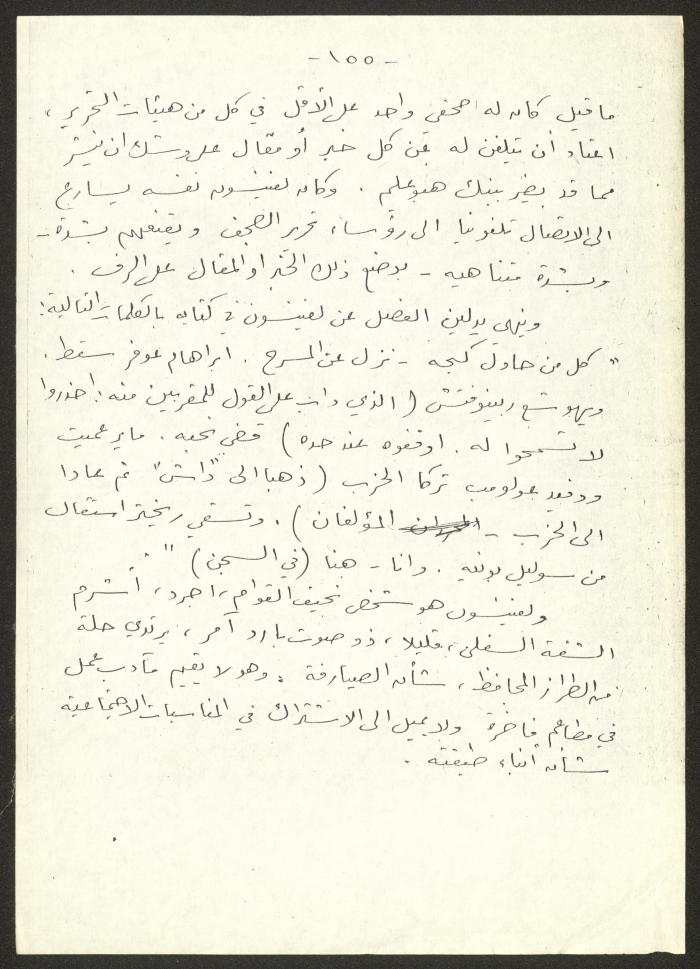 - ١٥٥ -
ما قيل كان له صحفي واحد على الأقل في كل من هيئات التحرير ،
اعتاد أن يتلفن له عن كل خبر أو مقال على وشك ان ينشر
مما قد يضير ببنك هبوعليم . وكان لفينسون نفسه يسارع
الى الاتصال تلفونيا الى رؤساء تحرير الصحف ويقنعهم بشدة -
وبشدة متناهيه - بوضع ذلك الخبر او المقال على الرف .
وينهي يدلين الفصل عن لفينسون في كتابه بالكلمات التالية :
" كل من حاول كبحه - نزل عن المسرح . ابراهام عوفر سقط .
ويهوشع ربينوفتش ( الذي داب على القول للمقربين منه : احذروا
لا تسمحوا له . اوقفوه عند حده ) قضى نحبه . ماير عميت
ودفيد جولومب تركا الحزب ( ذهبا الى "داش" ثم عادا
الى الحزب - المؤلفان ) . وتسفي ريختر استقال
من سوليل بونيه . وانا - هنا ( في السجن ) " .
ولفينسون هو شخص نحيف القوام ، اجرد ، أشرم
الشفة السفلى ، قليلا ، ذو صوت بارد آمر ، يرتدي حلة
من الطراز المحافظ ، شأن الصيارفة . وهو لا يقيم مآدب عمل
في مطاعم فاخرة ولا يميل الى الاشتراك في المناسبات الاجتماعية
شأن أبناء طبقته .